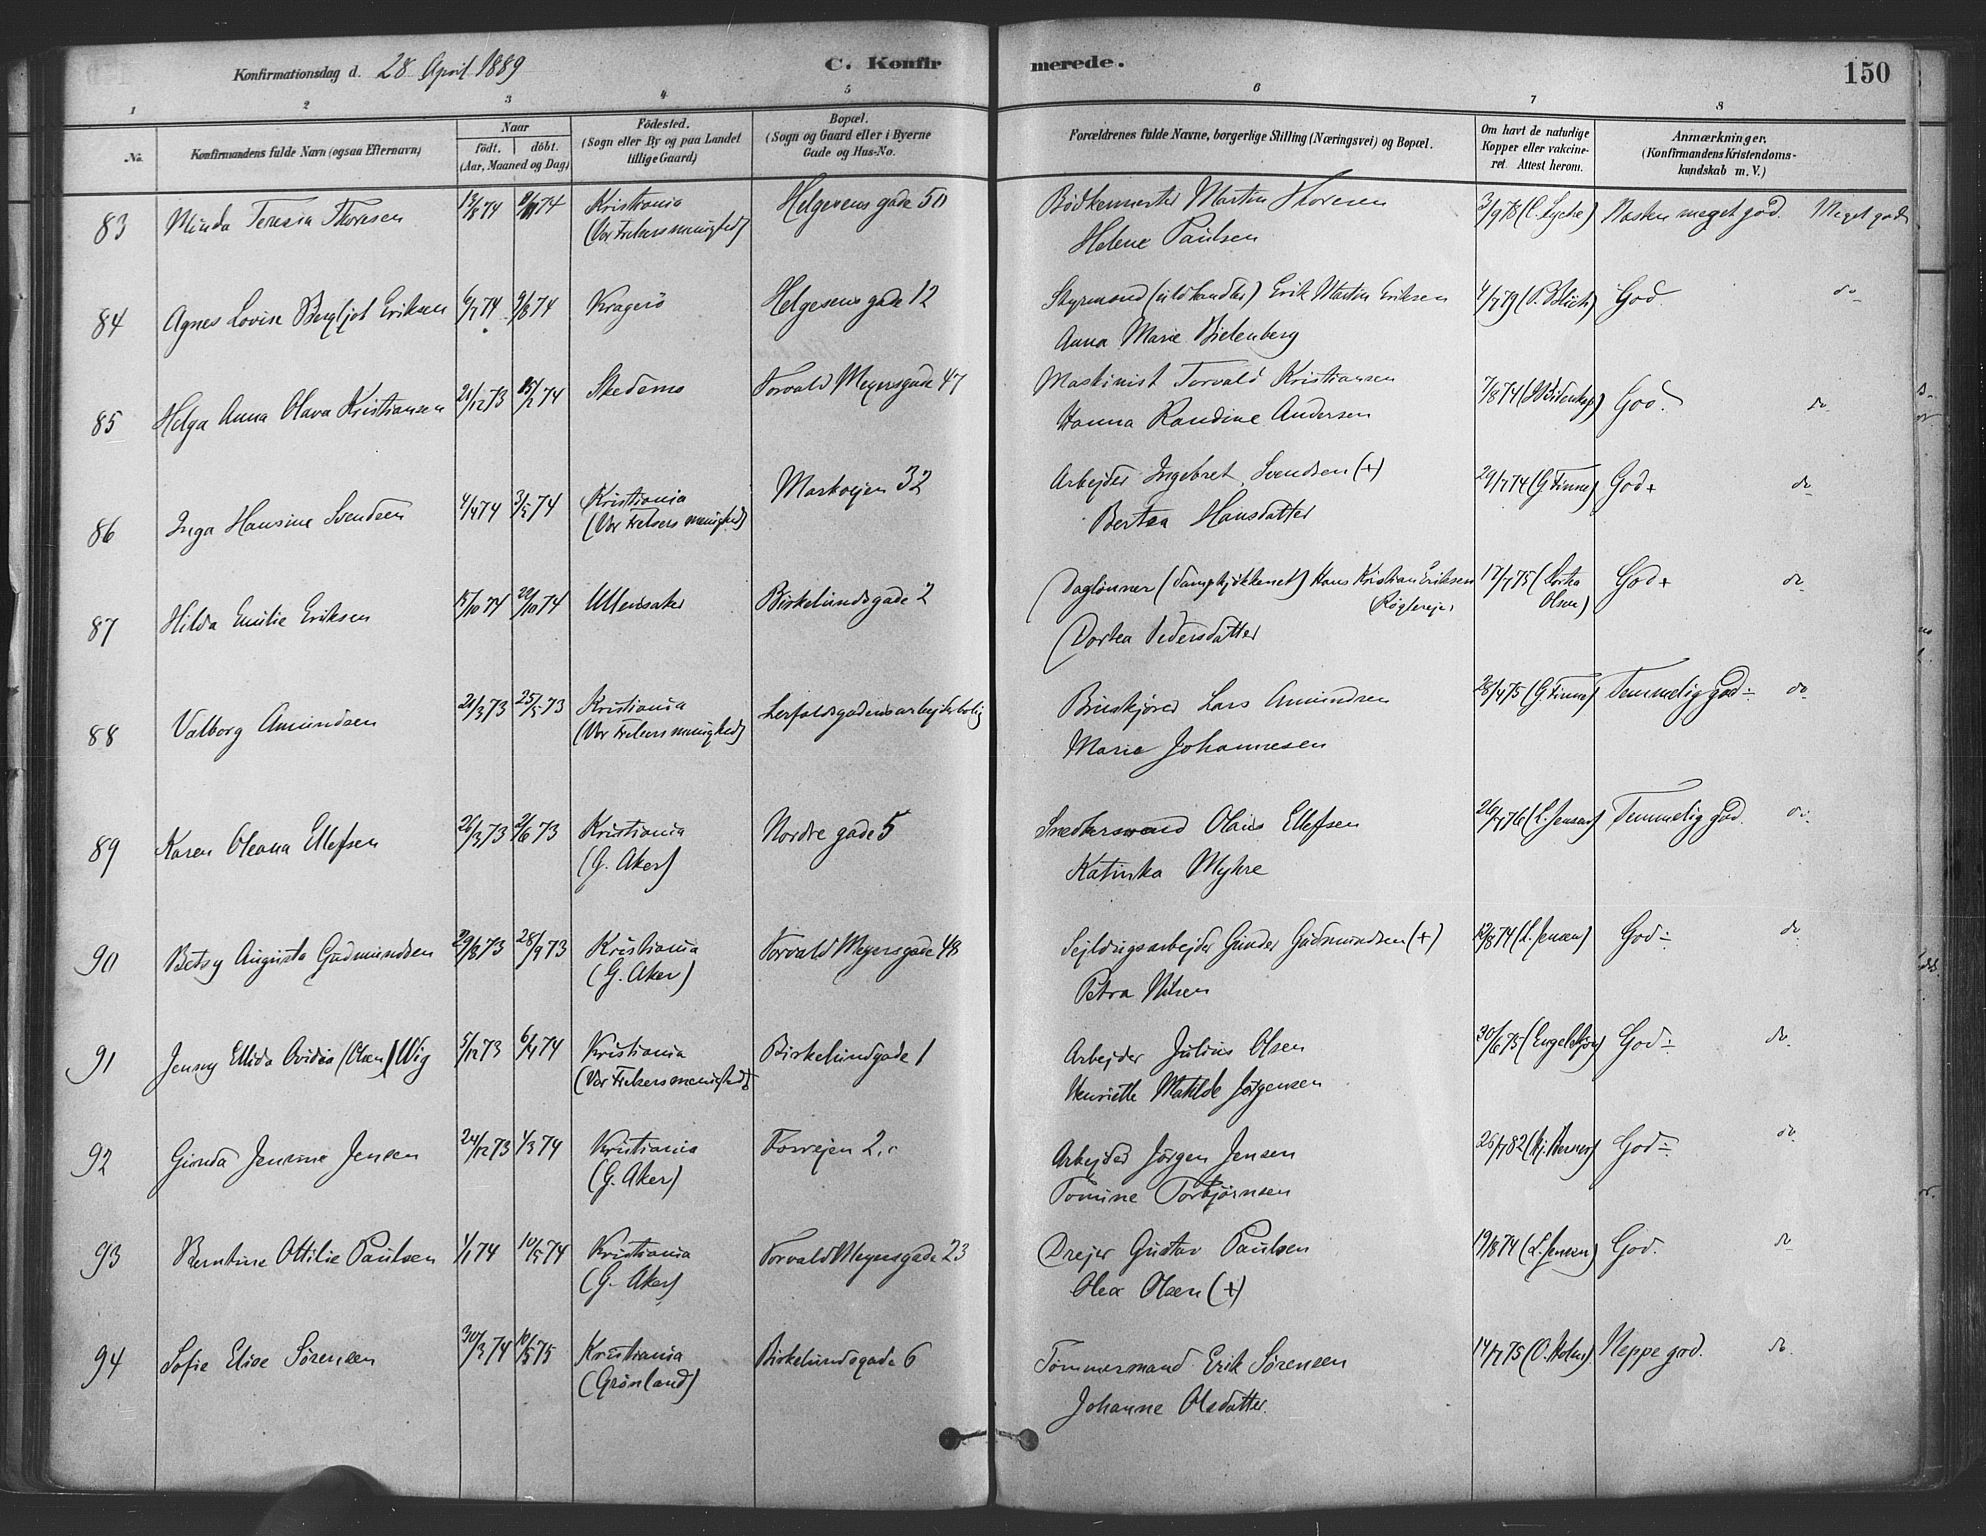 Konfirmationsdag d. 28 April 1889
C. Konfirmerede.
150
1 2 3 4 5 6 7 8
No.
Konfirmandens fulde Navn (ogsaa Efternavn)
Naar
födt. döbt.
(Aar, Maaned og Dag)
Födested.
(Sogn eller By og paa Landet
tillige Gaard)
Bopæl.
(Sogn og Gaard eller i Byerne
Gade og Hus-No.
Forældrenes fulde Navne, borgerlige Stilling (Næringsvei) og Bopæl.
Om havt de naturlige
Kopper eller vakcine-
ret. Attest herom.
Anmærkninger.
(Konfirmandens Kristendoms-
kundskab m. V.)
83 Minda Teresia Thoresen 74 74 Kristiania Helgesens gade 50 Bödkermester Martin Thoresen 3/9 78 Næsten meget god. Meget god
(Vor Frelsers menighed) Helene Paulsen
84 Agnes Lovise Bergljot Eriksen 6/7 74 9/8 74 Kragerö Helgesens gade 12 Styrmand Erik Martin Eriksen 4/7 79 God. do
Anna Marie Bielenberg
85 Helga Anna Olava Kristiansen 21/12 73 15/2 74 Skedsmo Torvald Meyersgade 47 Maskinist Torvald Kristiansen 7/8 74 God. do
Hanna Randine Andersen
86 Inga Hansine Svendsen 4/4 74 3/5 74 Kristiania Markvejen 32 Arbejder Ingebret Svendsen (+) 29/7 74 (G. Finne) God+ do
(Vor Frelsers menighed) Bertea Hansdatter
87 Hilda Emilie Eriksen 74 74 Ullensaker Birkelundsgade 2 Daglönner (Dampkjökkenet) Hans Kristian Eriksen 17/7 75 (Dortea God+ do
Olsen)
Dortea Pedersdatter
88 Valborg Amundsen 21/3 73 25/5 73 Kristiania Lerfaldsgadens arbejderbolig Bruskjörer Lars Amundsen 28/4 75 (G. Finne) Temmelig god÷ do
(Vor Frelsers menighed) Marie Johannesen
89 Karen Oleana Ellefsen 26/3 73 2/6 73 Kristiania Nordre gade 5 Snedkersvend Olaus Ellefsen 26/7 76 (L. Jensen) Temmelig god. do.
(G. Aker) Katinka Myhre
90 Betsy Augusta Gudmundsen 29/8 73 28/9 73 Kristiania Torvald Meyersgade 48 Sejldugsarbejder Gunder Gudmundsen (+) 12/8 74 (L. Jensen) God÷ do
(G. Aker) Petra Nilsen
91 Jenny Ellida Ovidia (Olsen) Wig 5/12 73 6/4 74 Kristiania Birkelundgade 1 Arbejder Julius Olsen 30/6 75 God÷ do
(Vor Frelsers menighed) Henriette Matilde Jørgensen
92 Gunda Jensine Jensen 24/12 73 1/3 74 Kristiania Fossvejen 2. Arbejder Jörgen Jensen 26/7 82 God÷ do
(G. Aker) Tomine Torbjørnsen
93 Berntine Ottilie Paulsen 1/1 74 10/5 74 Kristiania Torvald Meyersgade 23 Drejer Gustav Paulsen 19/8 74 (L. Jensen) God. do
(G. Aker) Olea Olsen (+)
94 Sofie Elise Sørensen 30/3 74 10/5 75 Kristiania Birkelundsgade 6 Tømmermand Erik Sørensen 14/7 75 (O. Holm) Neppe god. do
(Grønland) Johanne Olsdatter.